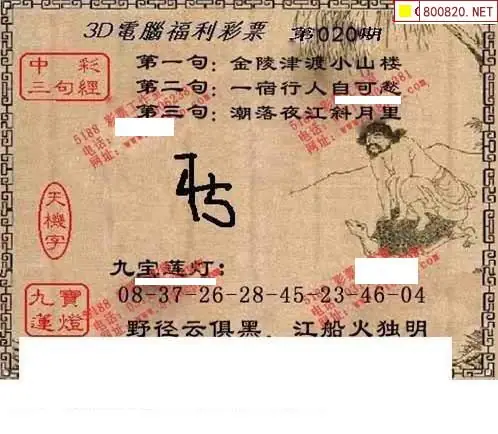 800820.NET
3D電腦福利彩票 第020期
中彩
三句經
第一句：金陵津渡小山楼
第二句：一宿行人自可愁
第三句：潮落夜江斜月里
天機字
九寶蓮燈
九宝莲灯：
08-37-26-28-45-23-46-04
野径云俱黑，江船火独明